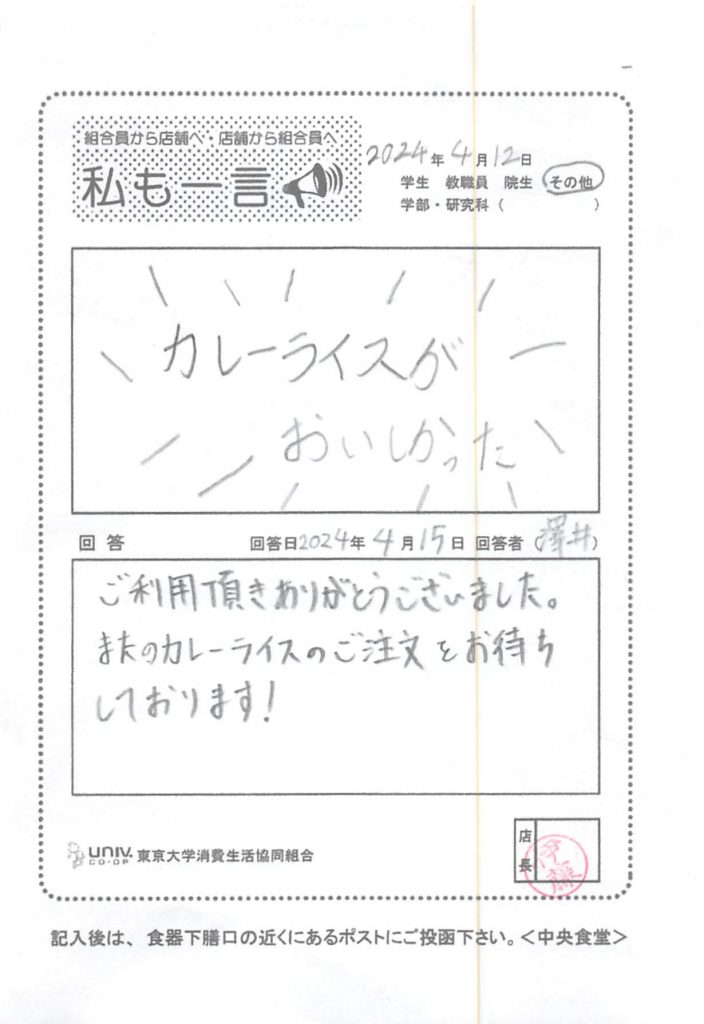 組合員から店舗へ・店舗から組合員へ
私も一言
2024年4月12日
学生 教職員 院生 その他
学部・研究科（ ）
カレーライスが
おいしかった
回答 回答日2024年4月15日 回答者（澤井）
ご利用頂きありがとうございました。
またのカレーライスのご注文をお待ち
しております!
UNIV. CO-OP 東京大学消費生活協同組合
店長
伊藤
記入後は、食器下膳口の近くにあるポストにご投函下さい。＜中央食堂＞